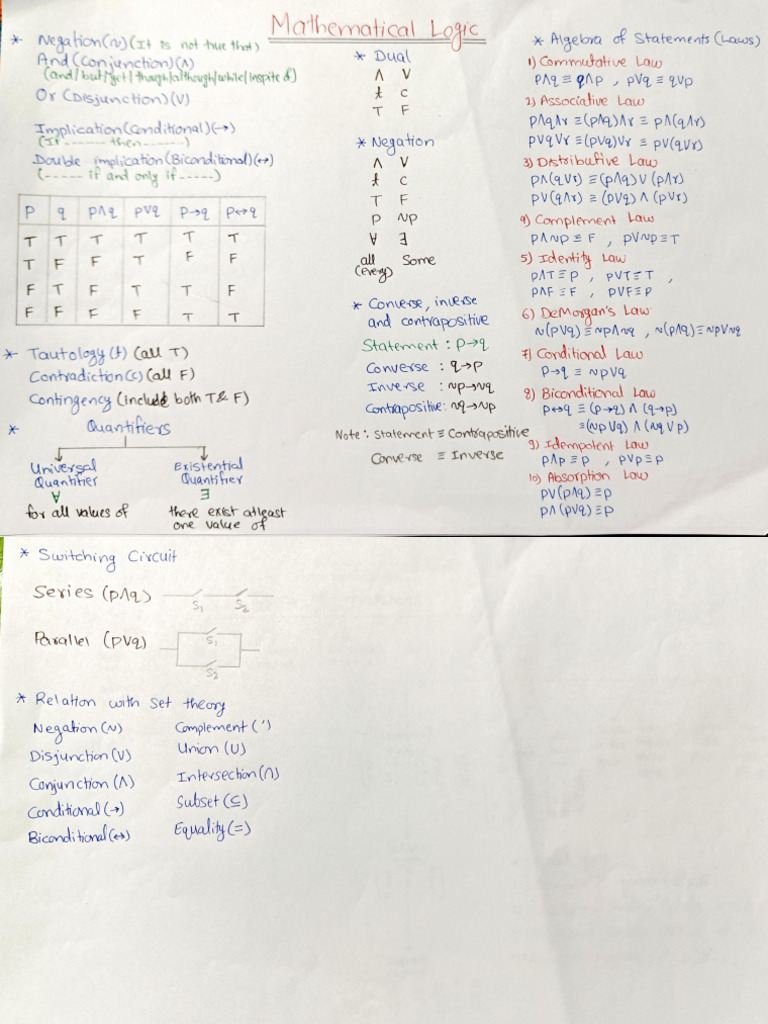 Mathematical Logic
* Negation(~)(It is not true that)
And (Conjunction)(∧)
(and/but/yet/though/although/while/inspite of)
Or (Disjunction)(∨)
Implication(Conditional)(→)
(If ------- then -------)
Double implication(Biconditional)(↔)
(----- if and only if -----)
p q p∧q p∨q p→q p↔q
T T T T T T
T F F T F F
F T F T T F
F F F F T T
* Tautology(t) (all T)
Contradiction(c) (all F)
Contingency (include both T & F)
* Quantifiers
Universal Quantifier
∀
for all values of
Existential Quantifier
∃
there exist atleast
one value of
* Dual
∧ ∨
t c
T F
* Negation
∧ ∨
t c
T F
p ~p
∀ ∃
all Some
(every)
* Converse, inverse
and contrapositive
Statement : p→q
Converse : q→p
Inverse : ~p→~q
Contrapositive: ~q→~p
Note: Statement ≡ Contrapositive
Converse ≡ Inverse
* Algebra of Statements (Laws)
1) Commutative Law
p∧q ≡ q∧p , p∨q ≡ q∨p
2) Associative Law
p∧q∧r ≡ (p∧q)∧r ≡ p∧(q∧r)
p∨q∨r ≡ (p∨q)∨r ≡ p∨(q∨r)
3) Distributive Law
p∧(q∨r) ≡ (p∧q)∨(p∧r)
p∨(q∧r) ≡ (p∨q)∧(p∨r)
4) Complement Law
p∧~p ≡ F , p∨~p ≡ T
5) Identity Law
p∧T ≡ p , p∨T ≡ T ,
p∧F ≡ F , p∨F ≡ p
6) DeMorgan's Law
~(p∨q) ≡ ~p∧~q , ~(p∧q) ≡ ~p∨~q
7) Conditional Law
p→q ≡ ~p∨q
8) Biconditional Law
p↔q ≡ (p→q)∧(q→p)
≡ (~p∨q)∧(~q∨p)
9) Idempotent Law
p∧p ≡ p , p∨p ≡ p
10) Absorption Law
p∨(p∧q) ≡ p
p∧(p∨q) ≡ p
* Switching Circuit
Series (p∧q) S1 S2
Parallel (p∨q) S1
S2
* Relation with set theory
Negation(~) Complement(')
Disjunction(∨) Union(∪)
Conjunction(∧) Intersection(∩)
Conditional(→) Subset(⊆)
Biconditional(↔) Equality(=)